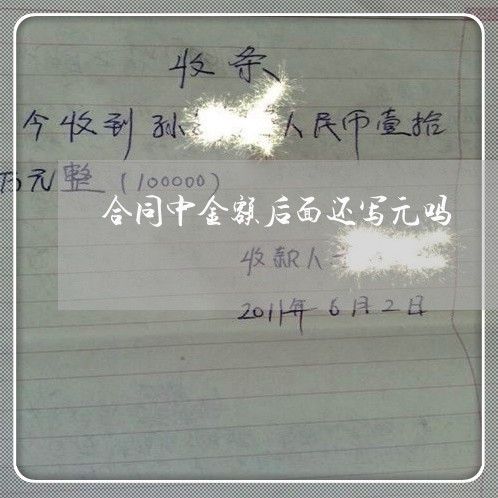 收条
今收到孙 人民币壹拾
万元整（100000）
合同中金额后面还写元吗
收款人
2011年6月2日